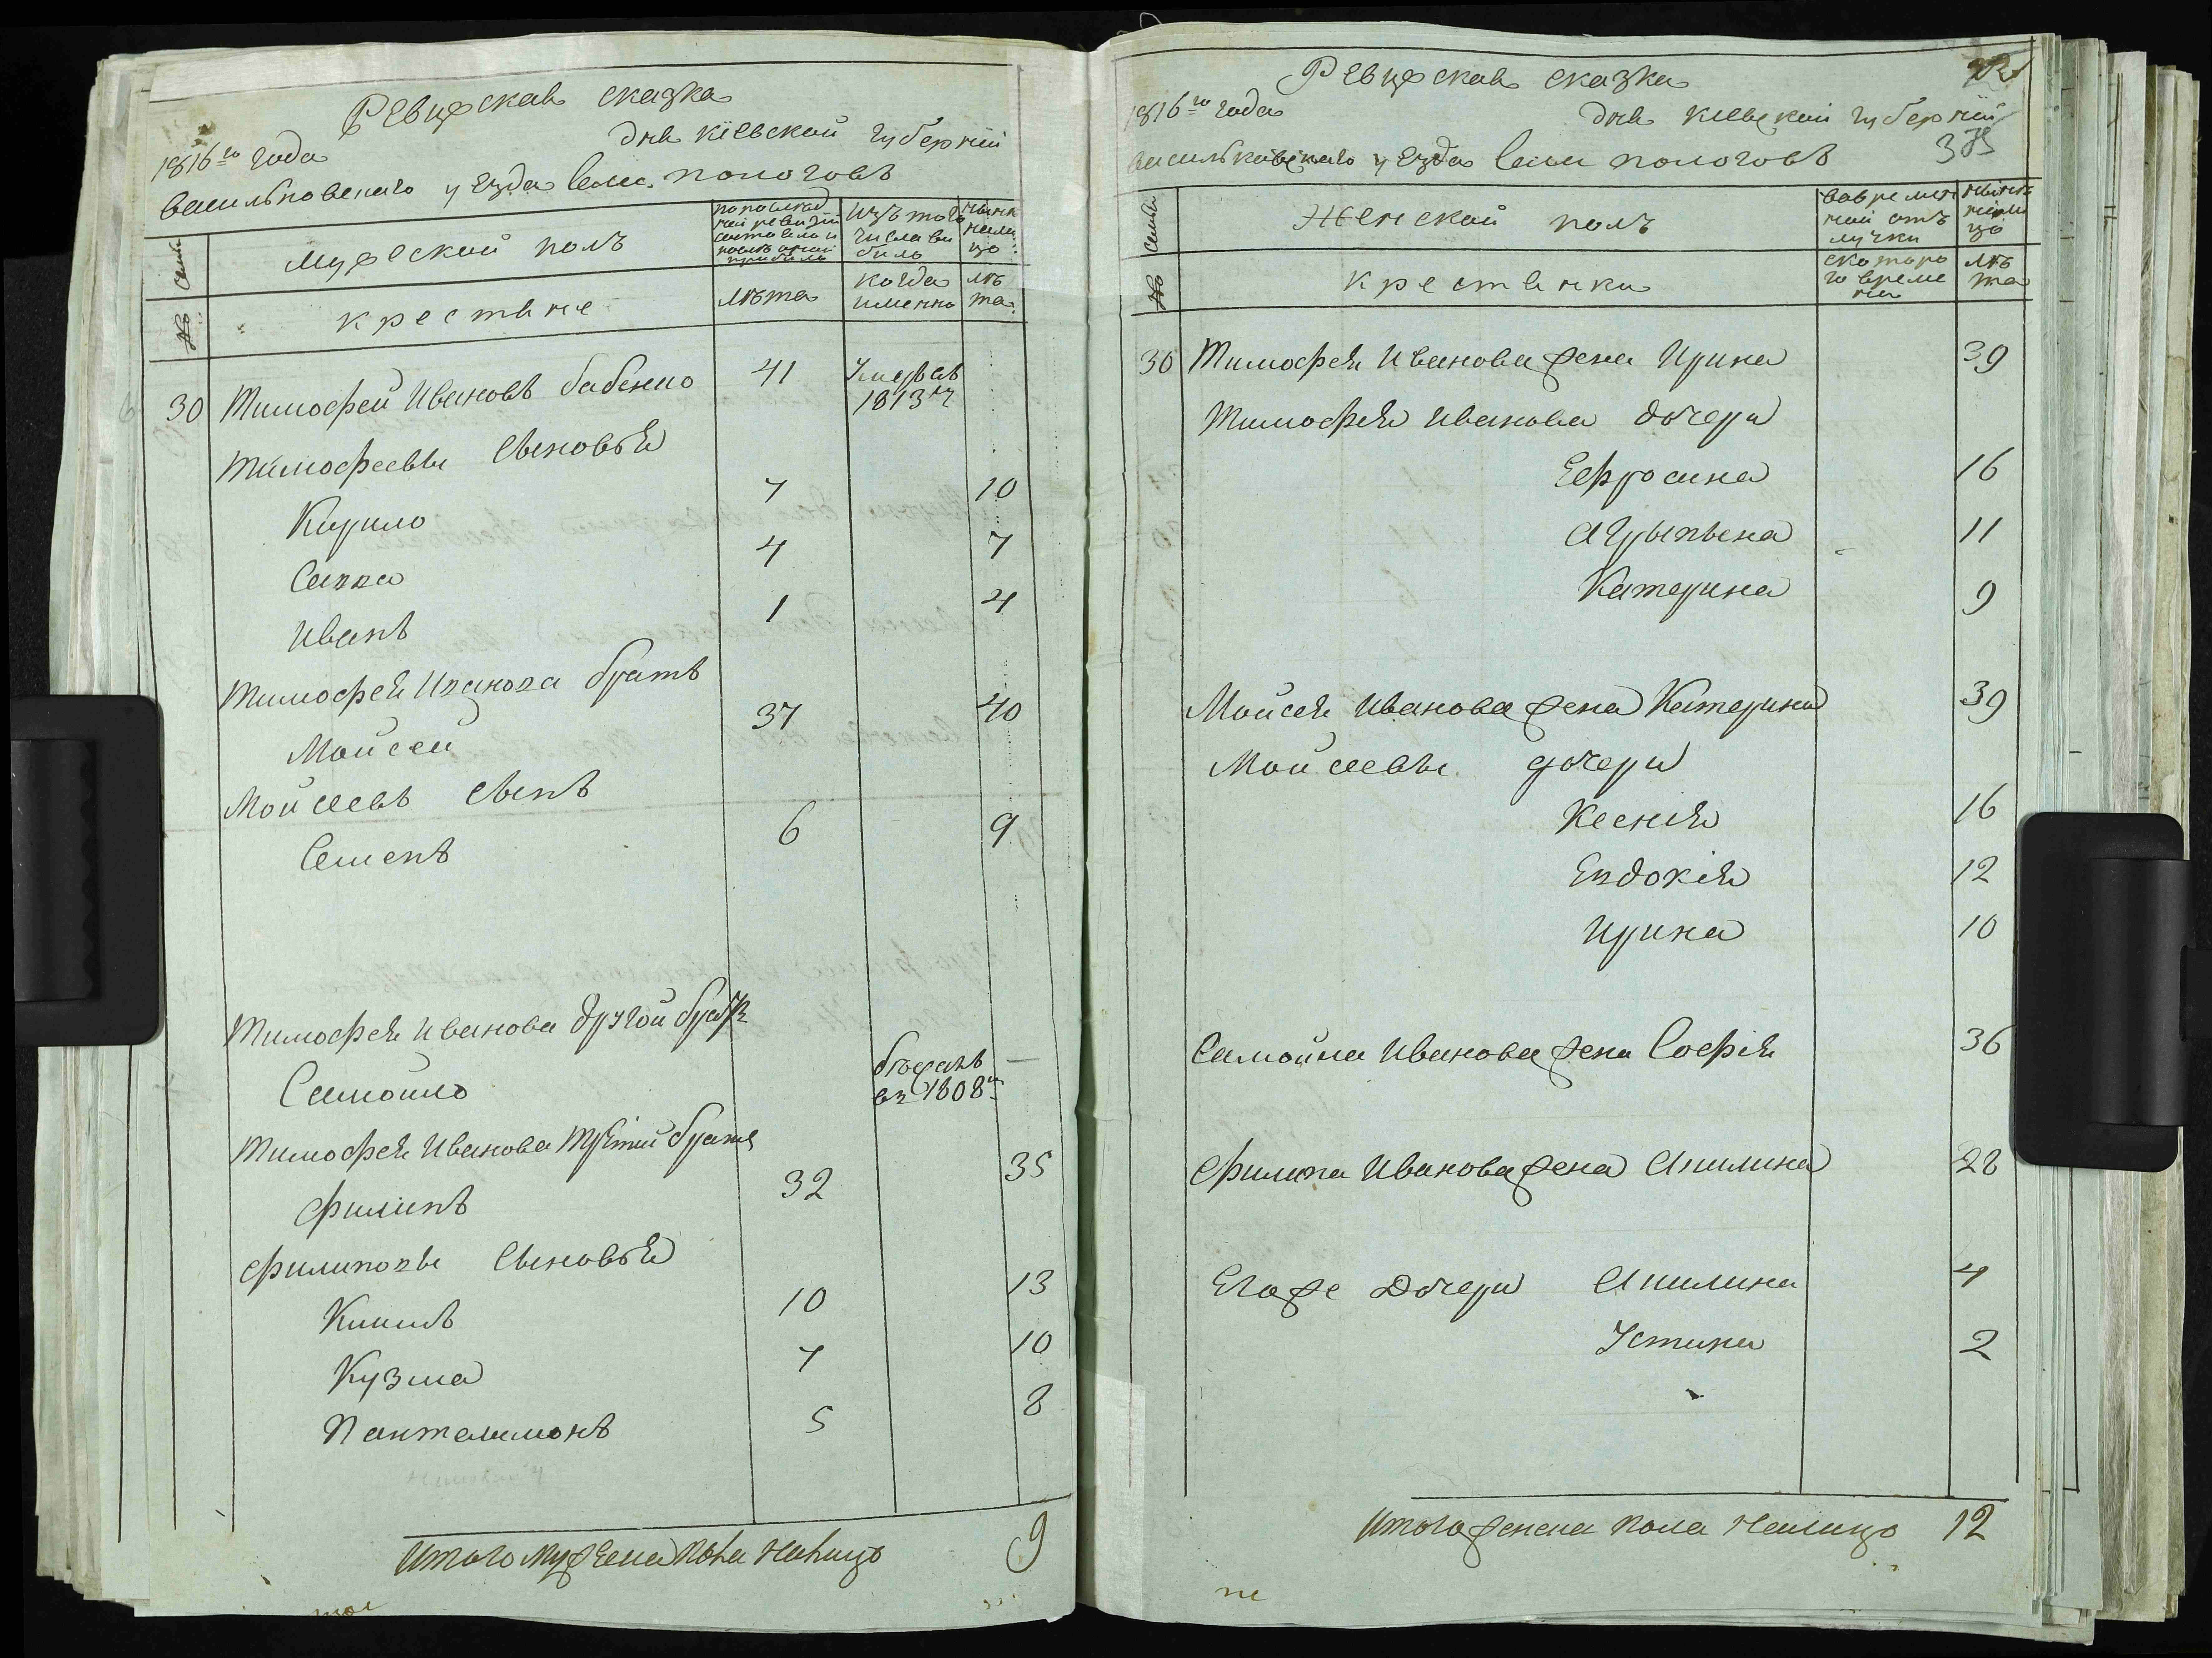 Ревизская сказка
1816го года дня Киевской губернии
Васильковского уезда села Пологовъ
№ Семьи
Мужеской полъ
по последней ревизии состояло и после оной прибыло
Изъ того числа выбыло
Ныне налицо
крестьяне
лѣта
когда именно
лѣта
30 Тимофей Ивановъ Бабенко 41 Умеръ въ 1813мъ
Тимофеевы Сыновья
Кирило 7 10
Савва 4 7
Иванъ 1 4
Тимофея Иванова братъ
Мойсей 37 40
Мойсеевъ Сынъ
Семенъ 6 9
Тимофея Иванова другой братъ
Самойло бежалъ въ 1808м —
Тимофея Иванова третий братъ
Филипъ 32 35
Филиповы Сыновья
Кирилъ 10 13
Кузма 7 10
Пантелимонъ 5 8
Итого мужеска пола налицо 9
Ревизская сказка
1816го года дня Киевской губернии
Васильковскаго уезда села Пологовъ
№ Семьи
Женской полъ
Во временной отлучки
Ныне налицо
Крестьянки
с которого времени
лѣта
30 Тимофея Иванова жена Ирина 39
Тимофея Иванова дочери
Ефросина 16
Агрыпьена 11
Катерина 9
Мойсея Иванова жена Катерина 39
Мойсеевы дочери
Ксения 16
Евдокія 12
Ирина 10
Самойла Иванова жена Софія 36
Филипа Иванова жена Акилина 28
Его же Дочери Акилина 4
Устина 2
Итого женска пола налицо 12